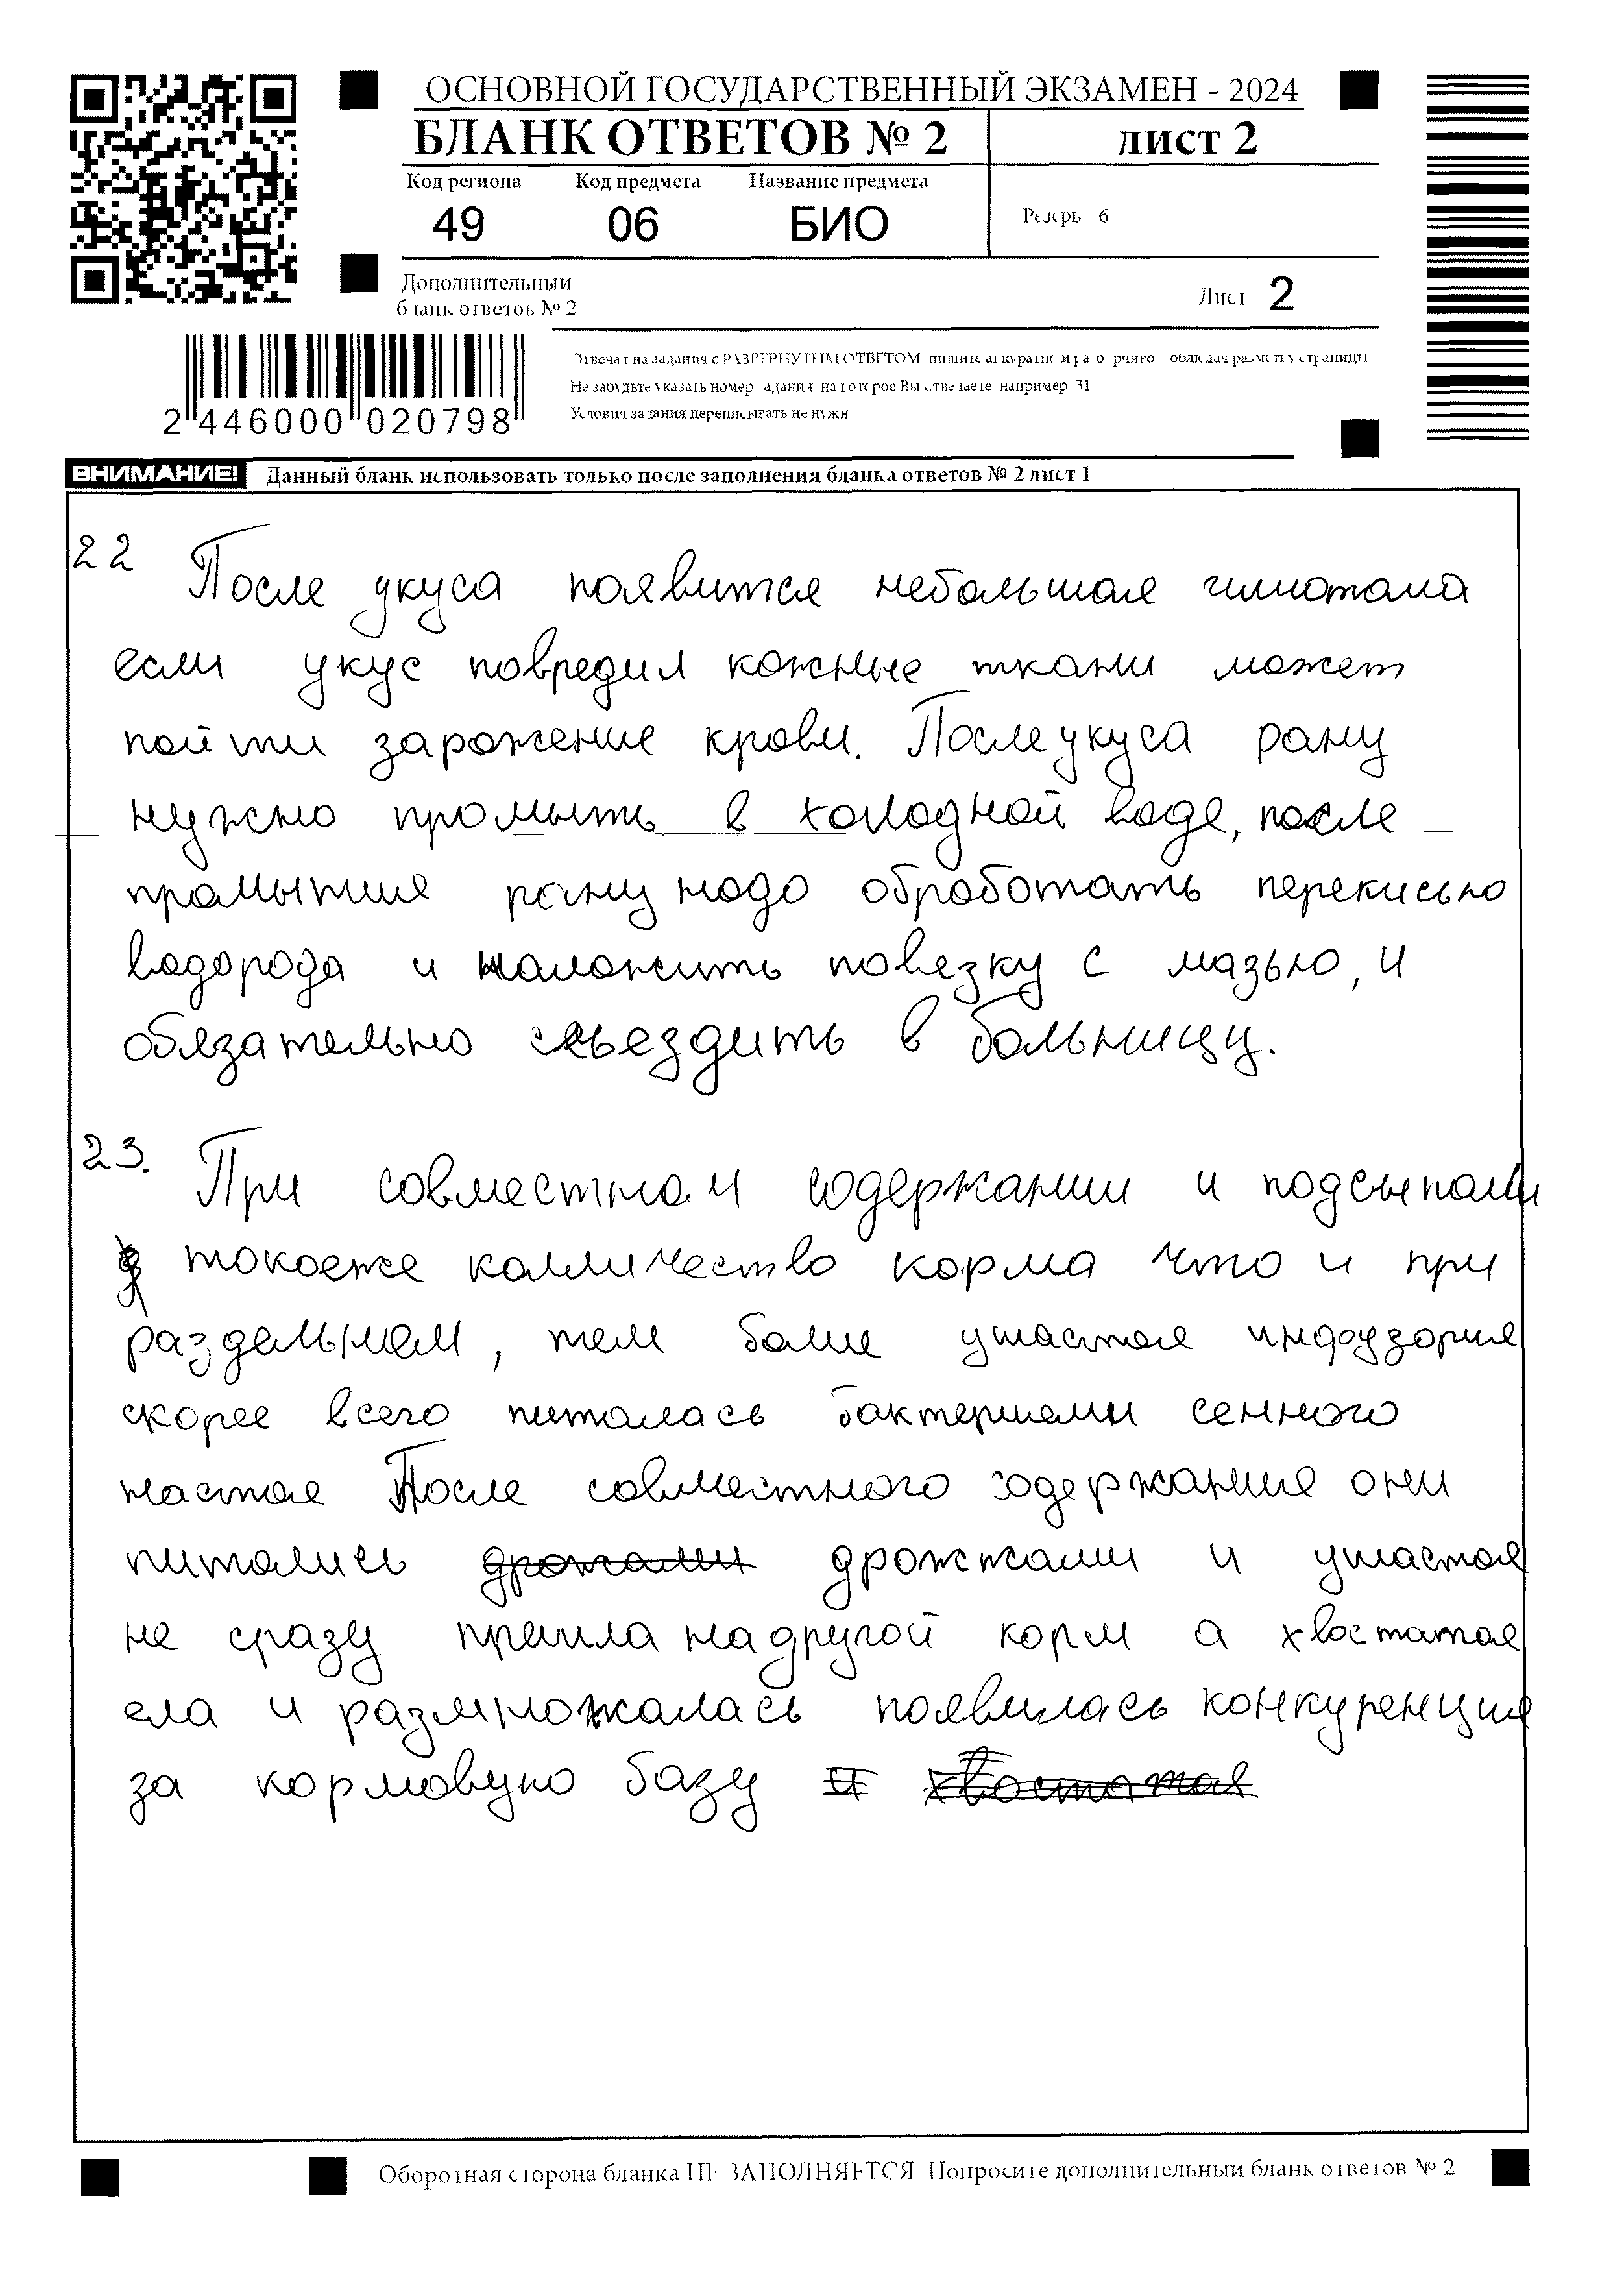 ОСНОВНОЙ ГОСУДАРСТВЕННЫЙ ЭКЗАМЕН - 2024
БЛАНК ОТВЕТОВ № 2
ЛИСТ 2
Код региона Код предмета Название предмета
49 06 БИО
Резерв 6
Дополнительный
бланк ответов № 2
Лист 2
2 446000 020798
Отвечая на задания с РАЗВЕРНУТЫМ ОТВЕТОМ пишите аккуратно и разборчиво соблюдая разметку страницы
Не забудьте указать номер задания на которое Вы отвечаете например 31
Условия задания переписывать не нужн
ВНИМАНИЕ! Данный бланк использовать только после заполнения бланка ответов № 2 лист 1
22 После укуса появится небольшая гиматома
если укус повредил кожные ткани может
пойти заражение крови. После укуса рану
нужно промыть в холодной воде, после
промытия рану надо обработать перекисью
водорода и наложить повезку с мазью, и
обязательно съездить в больницу.
23. При совместном содержании и подсыпали
токоеже колличество корма что и при
раздельном, тем более ушастая инфузория
скорее всего питалась бактериями сенного
настоя После совместного содержания они
питались дрожжами и ушастая
не сразу на другой корм а хвостатая
ела и размножалась появилась конкуренция
за кормовую базу
Оборотная сторона бланка НЕ ЗАПОЛНЯЕТСЯ Попросите дополнительный бланк ответов № 2